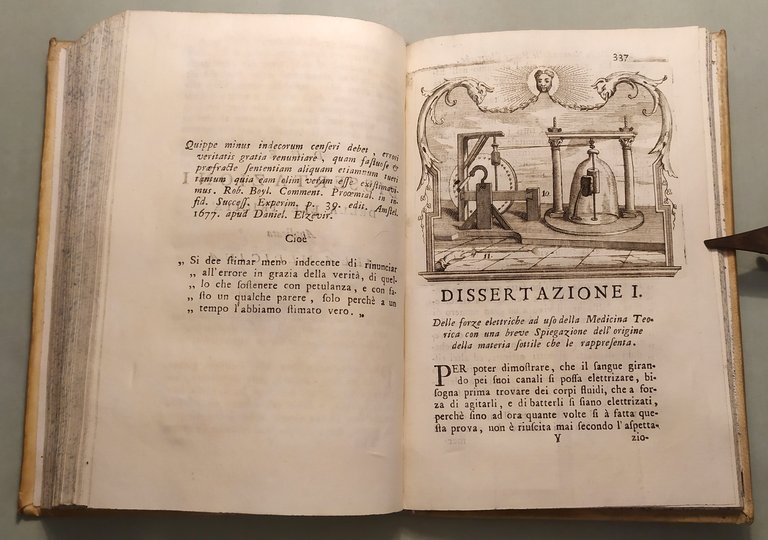 Quippe minus indecorum censeri debet, errori
veritatis gratia renuntiare, quam fastuose &
præfracte sententiam aliquam etiamnum tueri
tantum quia eam olim veram esse existimavi-
mus. Rob. Boyl. Comment. Proœmial. in in-
fid. Success. Experim. p. 39. edit. Amstel.
1677. apud Daniel. Elzevir.
Cioè
„ Si dee stimar meno indecente di rinunciar
„ all'errore in grazia della verità, di quel-
„ lo che sostenere con petulanza, e con fa-
„ sto un qualche parere, solo perchè a un
„ tempo l'abbiamo stimato vero. „
337
10.
DISSERTAZIONE I.
Delle forze elettriche ad uso della Medicina Teo-
rica con una breve Spiegazione dell'origine
della materia sottile che le rappresenta.
PER poter dimostrare, che il sangue giran-
do pei suoi canali si possa elettrizare, bi-
sogna prima trovare dei corpi fluidi, che a for-
za di agitarli, e di batterli si siano elettrizati,
perchè sino ad ora quante volte si à fatta que-
sta prova, non è riuscita mai secondo l'aspetta-
Y zio-